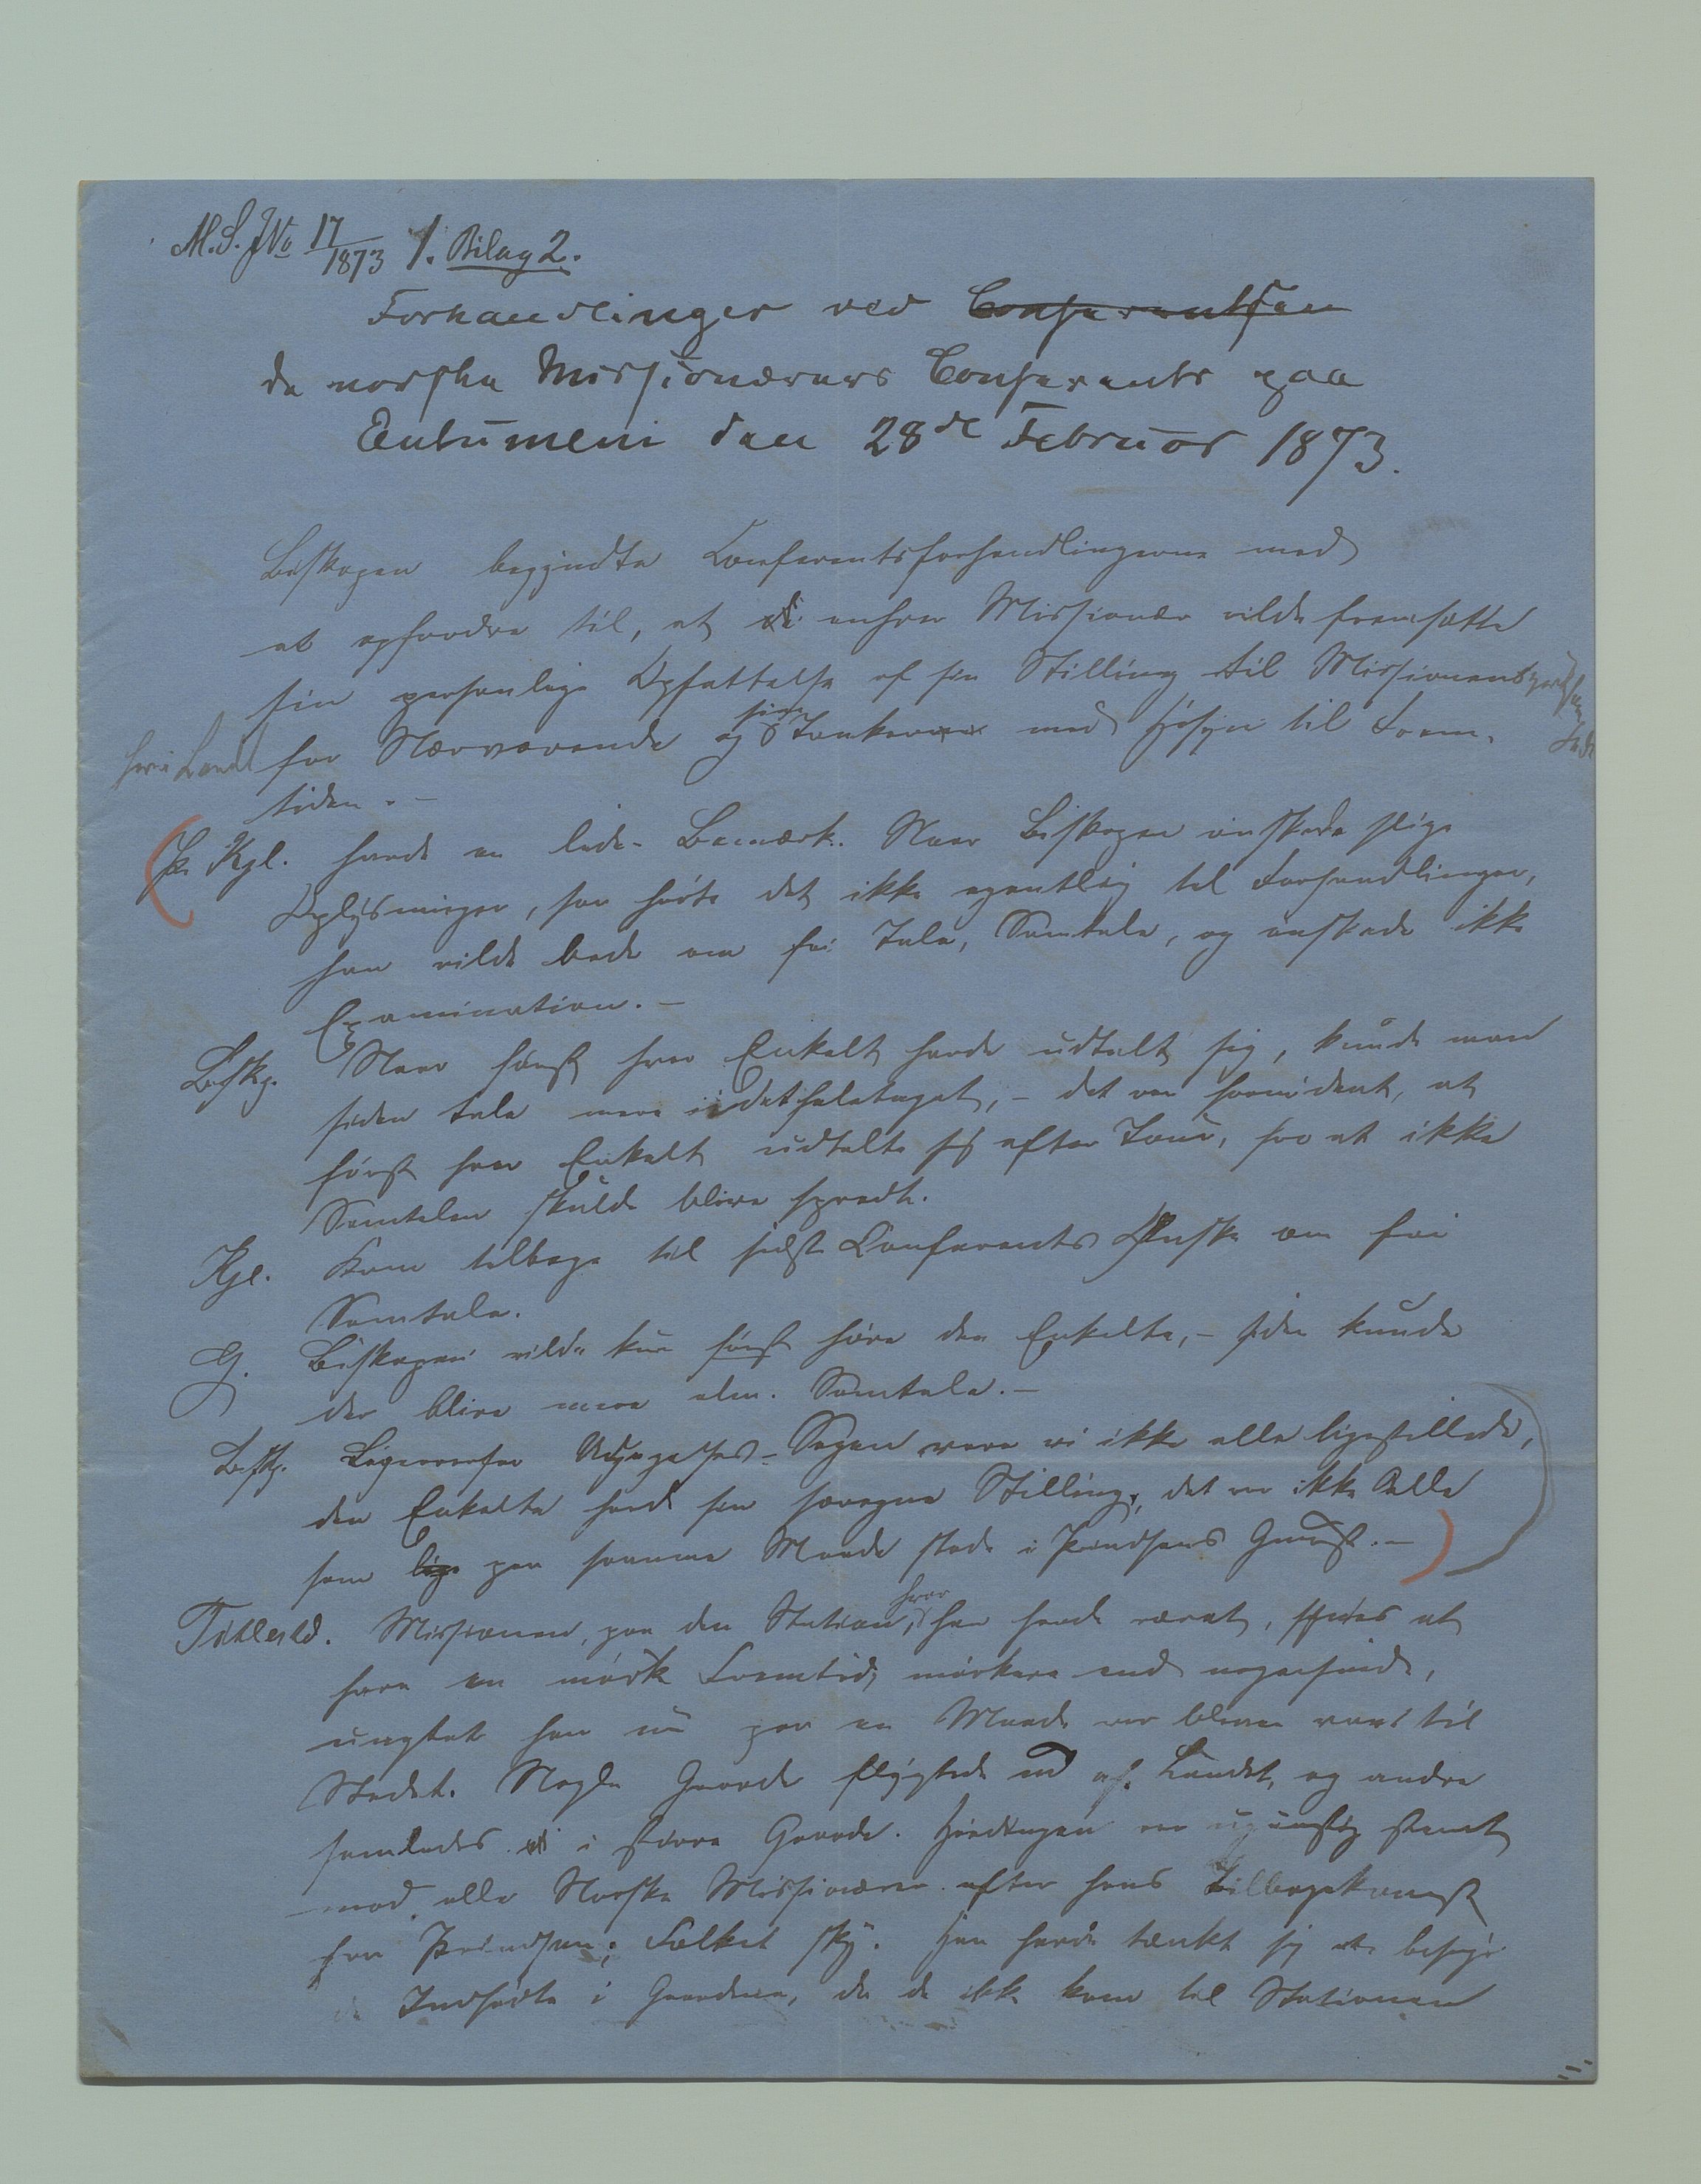 M.S. JNo 17/1873 1. Bilag 2.
Forhandlinger ved Conferentsen
de norske Missionærers Conferents paa
Entumeni den 28de Februar 1873.
Biskopen begyndte Conferentsforhandlingerne med
at opfordre til, at enhver Missionær vilde fremsætte
sin personlige Opfattelse af sin Stilling til Missionens
her i Landet for Nærværende og sine Tanker med Hensyn til Frem-
tiden. –
Kyl. havde en liden Bemærk. Naar Biskopen ønskede slige
Oplysninger, saa hørte det ikke egentlig til Forhandlinger,
han vilde bede om fri Tale, Samtale, og ønskede ikke
Examination. –
Biskp. Naar først hver Enkelt havde udtalt sig, kunde man
siden tale mere i det hele taget, – det var at
først hver Enkelt udtalte sig efter Tour, for at ikke
Samtalen skulde blive spredt.
Kyl. Kom tilbage til sidste Conferents Ønske om fri
Samtale.
G. Biskopen vilde kun først høre den Enkelte, – siden kunde
der blive mere alm. Samtale. –
Biskp. Ligeoverfor Sagen vare vi ikke alle ligestillede,
den Enkelte havde sin særegne Stilling, det var ikke Alle
som lige paa samme Maade stode i Prindsens Gunst. –
Tibolsd. Missionen, paa den Station, hvor han havde været, syntes at
have en mørk Fremtid, mørkere end nogensinde,
uagtet han nu paa en Maade var bleven vant til
Stedet. Nogle Gaarde flygtede ud af Landet, og andre
samledes i større Gaarde. Høvdingen var ugunstig stemt
mod alle Norske Missionærer efter hans Tilbagekomst
fra Prindsen; Folket sky. Han havde tænkt sig at besøge
de Indfødte i Gaardene, da de ikke kom til Stationen